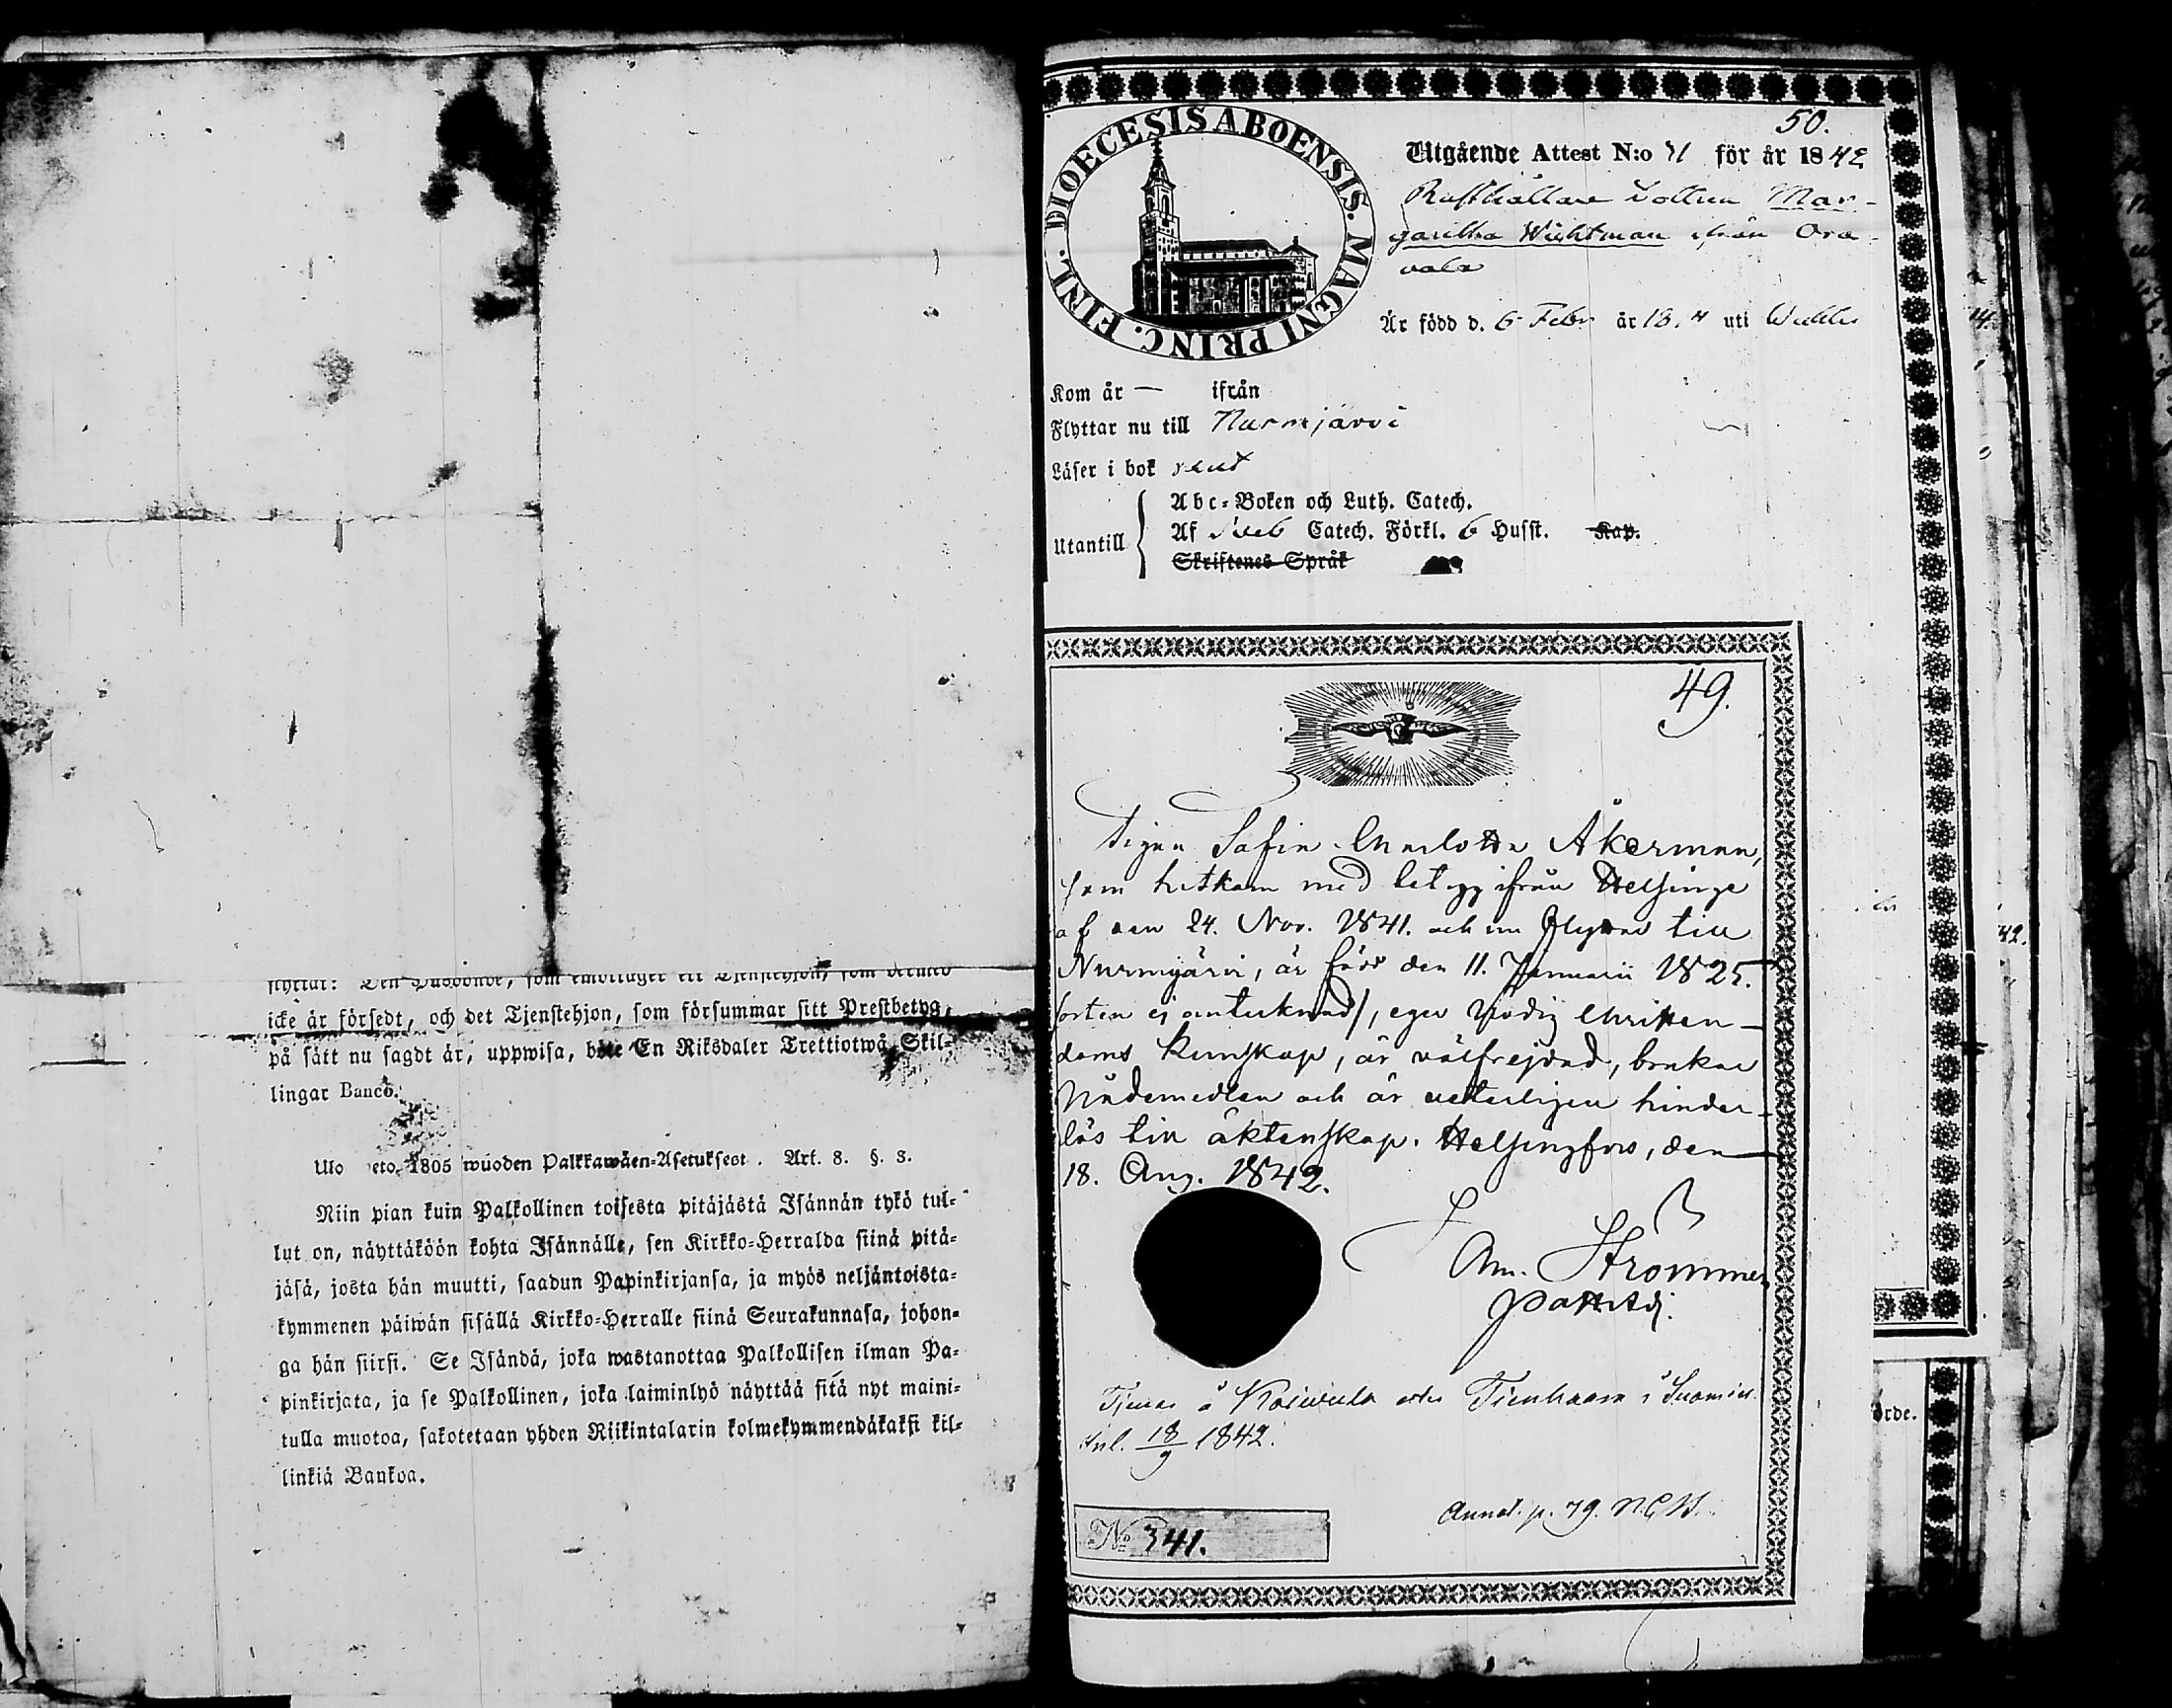 icke är försedt, och det Tjenstehjon, som försummar sitt Prestbetyg,
på sätt nu sagdt är, uppwisa, böte En Riksdaler Trettiotwå Skil-
lingar Banco.
1805 wuoden Palkkawäen-Asetuksest . Art. 8. §. 3.
Niin pian kuin Palkollinen toisesta pitäjästä Isännän tykö tul-
lut on, näyttäköön kohta Isännälle, sen Kirkko-Herralda siinä pitä-
jäsä, josta hän muutti, saadun Papinkirjansa, ja myös neljäntoista-
kymmenen päiwän sisällä Kirkko-Herralle siinä Seurakunnasa, johon-
ga hän siirsi. Se Isändä, joka wastanottaa Palkollisen ilman Pa-
pinkirjata, ja se Palkollinen, joka laiminlyö näyttää sitä nyt maini-
tulla muotoa, sakotetaan yhden Riikintalarin kolmekymmendäkaksi kil-
linkiä Bankoa.
50.
DIOECESIS ABOENSIS. MAGNI PRINC. FINL.
Utgående Attest N:o 71 för år 1842
Rusthållare Mar-
garetha ifrån Ora-
vala
Är född d. 6 Febr år 18 uti
Kom år — ifrån
Flyttar nu till Nurmjärvi
Läser i bok
Utantill
Abc-Boken och Luth. Catech.
Af Sveb Catech. Förkl. 6 Husst. Kap.
Skriftenes Språk
49.
Pigan Sofia Charlotta Åkerman,
som hitkom med betyg ifrån Helsinge
af den 24. Nov. 1841. och nu flyttar till
Nurmijärvi, är född den 11. Januarii 1825.
orten ej antecknad/, eger nödig Christen-
doms kunskap, är välfrejdad, brukar
Nådemedlen och är veterligen hinder-
lös till äktenskap. Helsingfors, den
18. Aug. 1842.
Am. Strömmer
Past. Adj.
Tjenar å
18/9 1842.
Annot. p. 79.
No 341.
örde.